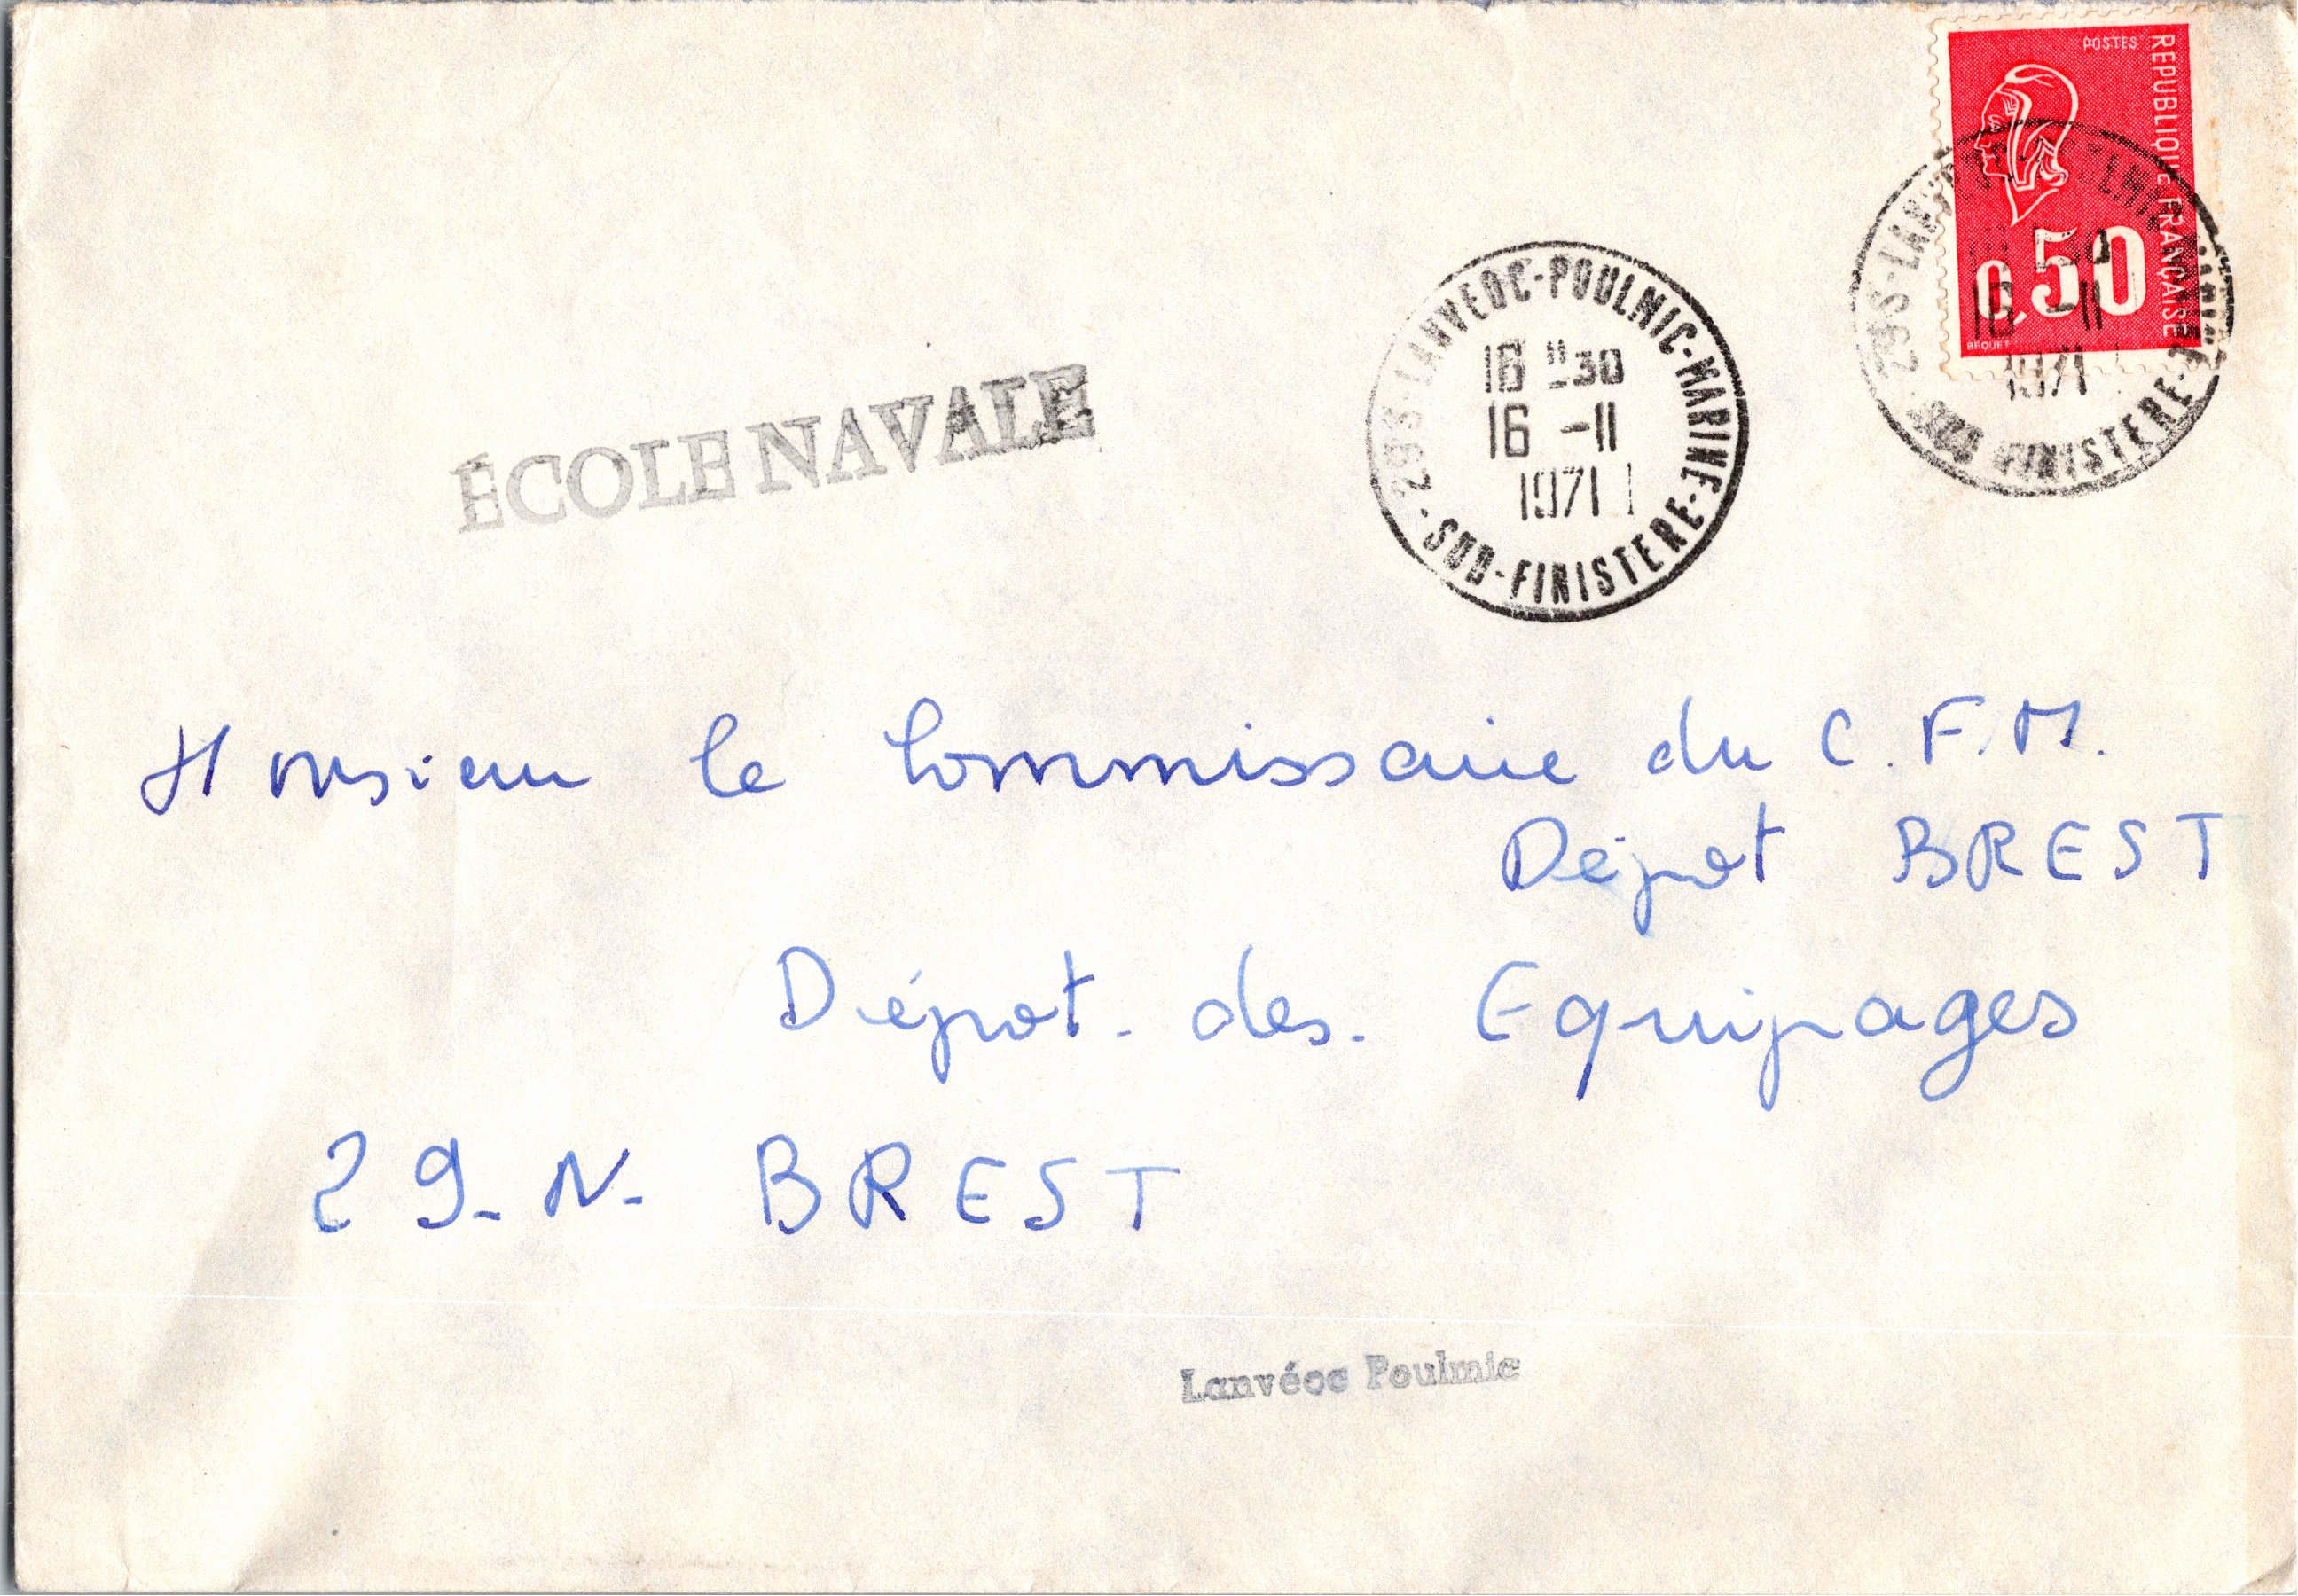 POSTES
REPUBLIQUE FRANÇAISE
0,50
BEQUET
29S-LANVEOC-POULMIC-MARINE-
16 H 30
16 -11
1971
SUD-FINISTERE
16 -11
1971
SUD FINISTERE
ÉCOLE NAVALE
Monsieur le Commissaire du C.F.M.
Dépot BREST
Dépot. des. Equipages
29-N- BREST
Lanvéoc Poulmic